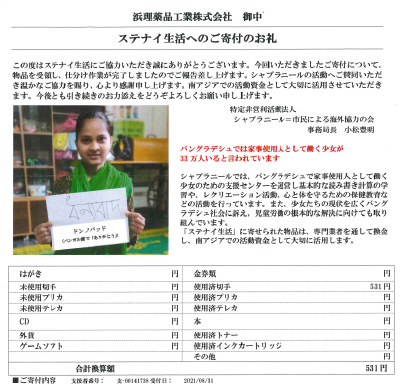 浜理薬品工業株式会社　御中
ステナイ生活へのご寄付のお礼
この度はステナイ生活にご協力いただき誠にありがとうございます。今回いただきましたご寄付について、
物品を受領し、仕分け作業が完了しましたのでご報告差し上げます。シャプラニールの活動へご賛同いただ
き温かなご協力を賜り、心より感謝申し上げます。南アジアでの活動資金として大切に活用させていただき
ます。今後とも引き続きのお力添えをどうぞよろしくお願い申し上げます。
特定非営利活動法人
シャプラニール＝市民による海外協力の会
事務局長　小松豊明
バングラデシュでは家事使用人として働く少女が
33万人いると言われています
シャプラニールでは、バングラデシュで家事使用人として働く
少女のための支援センターを運営し基本的な読み書き計算の学
習や、レクリエーション活動、心と体を守るための保健教育な
どの活動を行っています。また、少女たちの現状を広くバング
ラデシュ社会に訴え、児童労働の根本的な解決に向けても取り
組んでいます。
「ステナイ生活」に寄せられた物品は、専門業者を通して換金
し、南アジアでの活動資金として大切に活用します。
ドンノバッド
(ベンガル語で「ありがとう」)
はがき 円 金券類 円
未使用切手 円 使用済切手 531円
未使用プリカ 円 使用済プリカ 円
未使用テレカ 円 使用済テレカ 円
CD 円 本 円
外貨 円 使用済トナー 円
ゲームソフト 円 使用済インクカートリッジ 円
その他 円
合計換算額 531円
支援者番号： 支-00141738 受付日： 2021/08/31